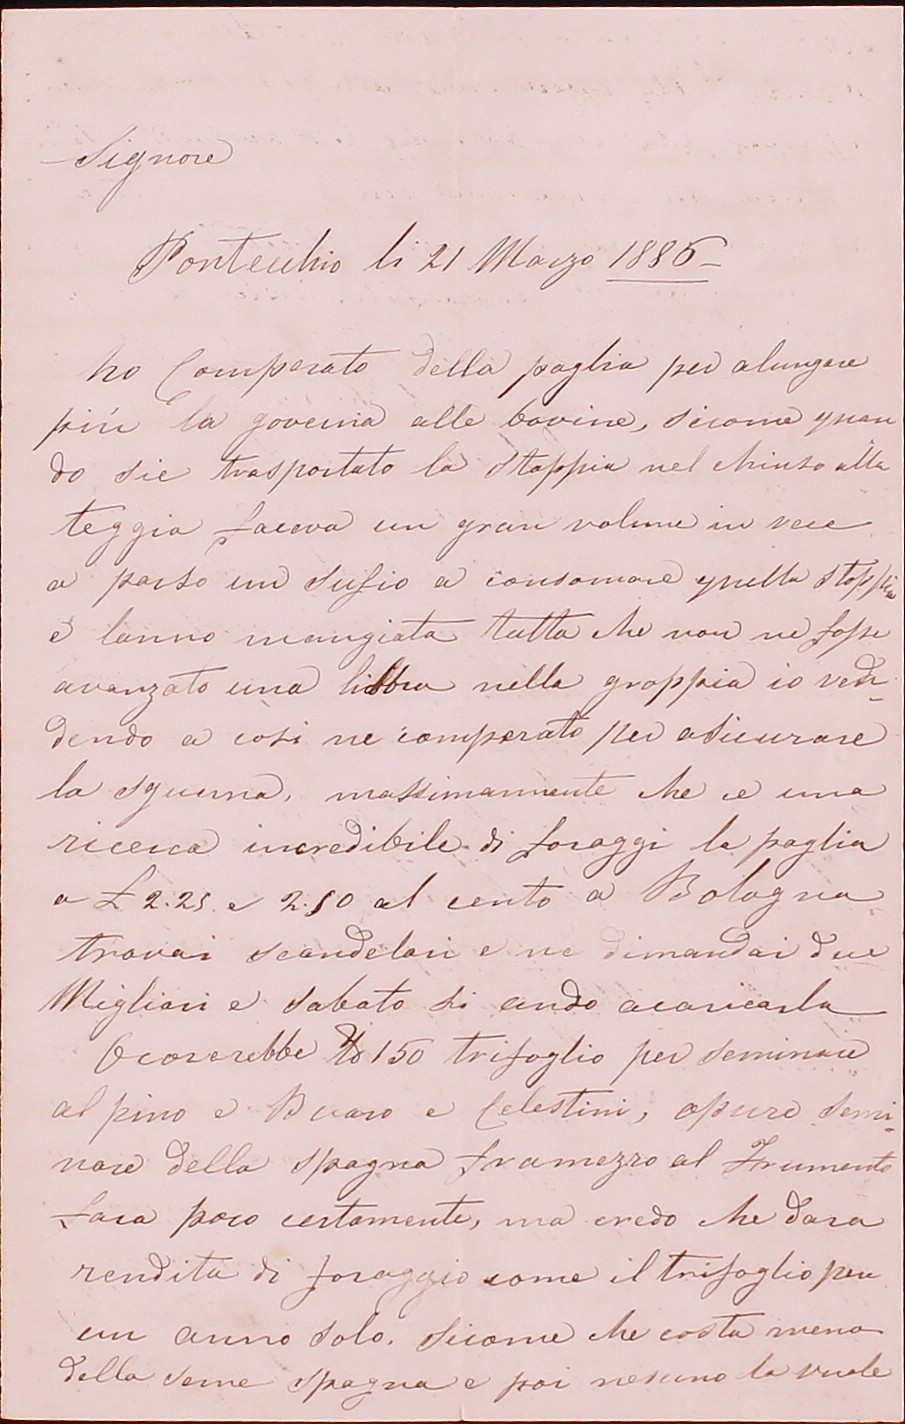 Signore
Pontecchio li 21 Marzo 1886
ho Comperato della paglia per alungare
più la governa alle bovine, sicome quan
do sie trasportato la stoppia nel chiuso alla
teggia faceva un gran volume in vece
a parso un sufio a consomare quella stoppia
e lanno mangiata tutta che non ne fosse
avanzato una libbra nella groppia io ved-
dendo a cosi ne comperato per asicurare
la sguerna, massimamente che ce una
ricerca incredibile di foraggi la paglia
a £ 2.25 e 2.50 al cento a Bologna
trovai scandelari e ne dimandai due
Migliari e sabato si ando acaricarla
Ocorerebbe 150 trifoglio per seminare
al pino e Buaro e Celestini, opure semi-
nare della spagna framezzo al Frumento
fara poco certamente, ma credo che dara
rendita di foraggio come il trifoglio per
un anno solo. Sicome che costa meno
della seme spagna e poi nesuno la vuole